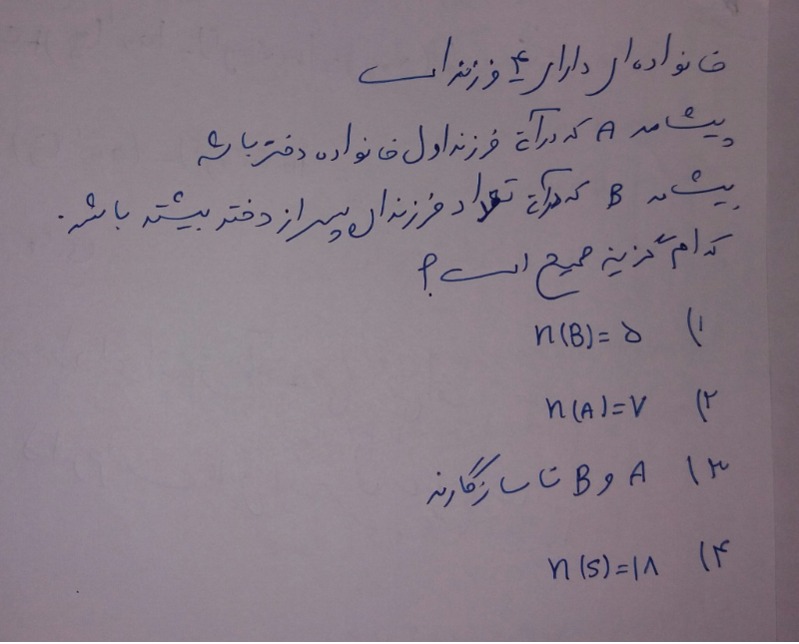 خانواده‌ای دارای ۴ فرزند است
پیشامد A که در آن فرزند اول خانواده دختر باشد
پیشامد B که در آن تعداد فرزندان پسر از دختر بیشتر باشد.
کدام گزینه صحیح است؟
۱) n(B)=۵
۲) n(A)=۷
۳) A و B ناسازگارند
۴) n(S)=۱۸